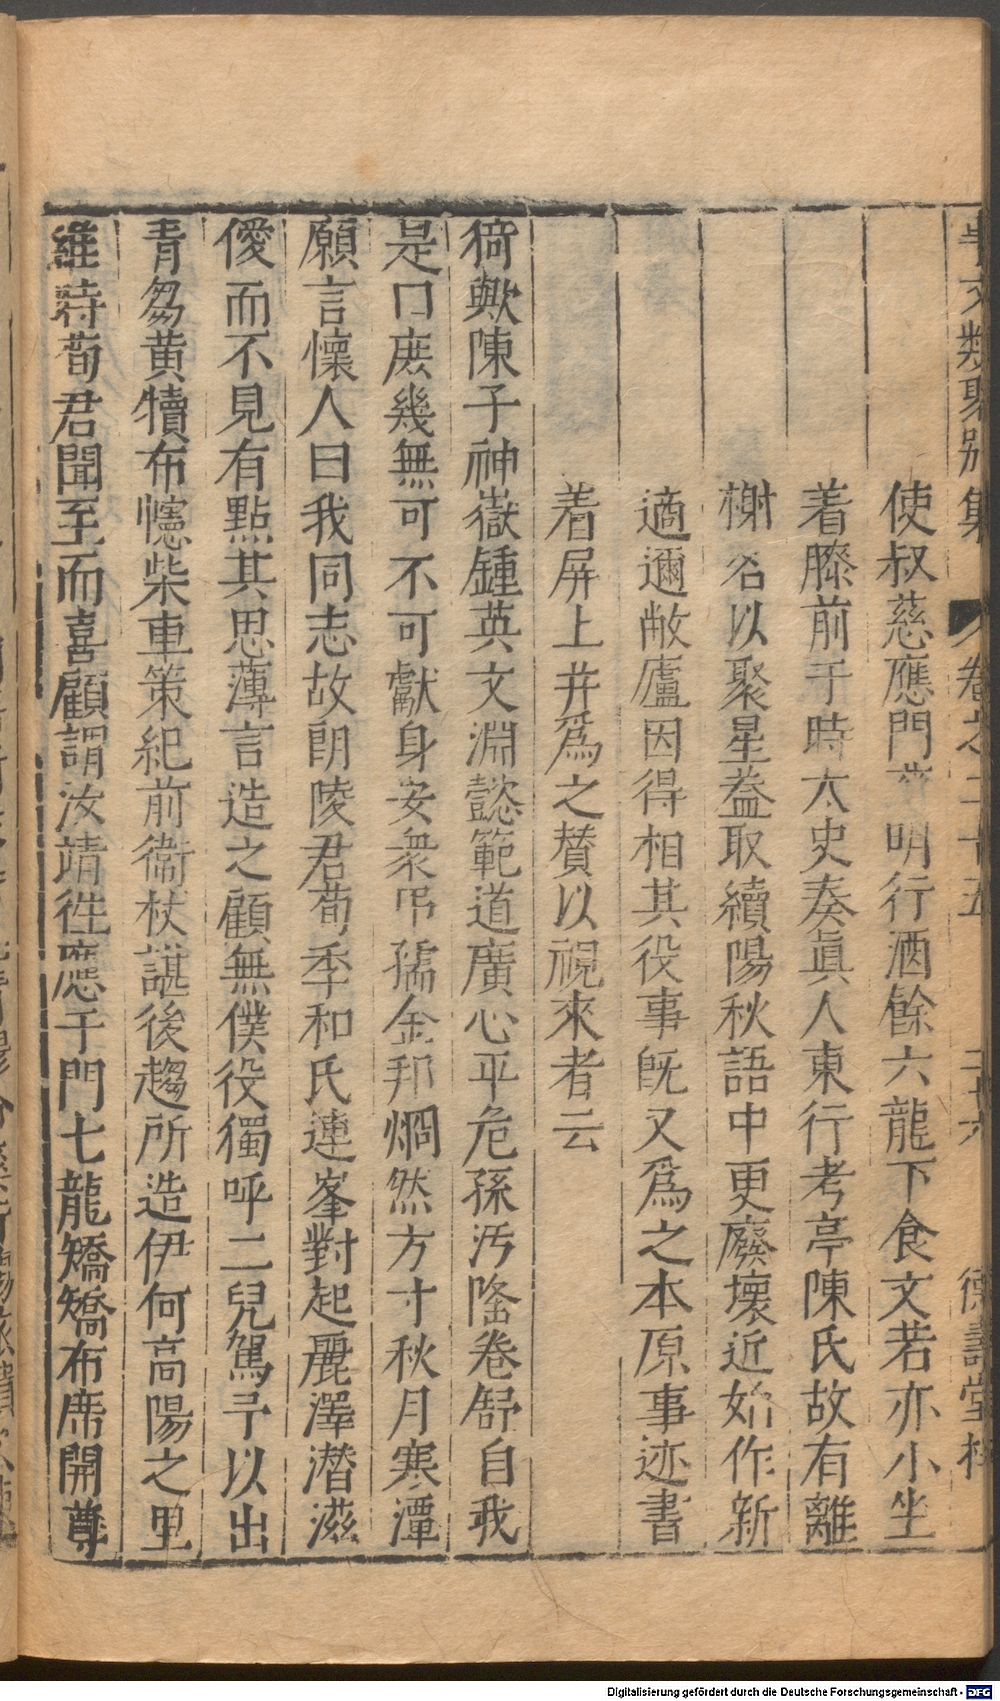 事文類聚別集 卷之二十五 二十六 德壽堂梓
使叔慈應門慈明行酒餘六龍下食文若亦小坐
着膝前于時太史奏眞人東行考亭陳氏故有離
榭名以聚星葢取續陽秋語中更廢壞近始作新
適邇敝廬因得相其役事旣又爲之本原事迹書
着屏上幷爲之賛以視來者云
猗歟陳子神嶽鍾英文淵懿範道廣心平危孫汚隆卷舒自我
是曰庶幾無可不可獻身安衆弔孺金邦烱然方寸秋月寒潭
願言懷人曰我同志故朗陵君荀季和氏連峯對起麗澤潜滋
僾而不見有黯其思薄言造之顧無僕役獨呼二兒駕予以出
青芻黃犢布幰柴車策紀前衞杖諶後趨所造伊何高陽之里
維時荀君聞至而喜顧謂汝靖徃應于門七龍矯矯布席開尊
Digitalisierung gefördert durch die Deutsche Forschungsgemeinschaft - DFG